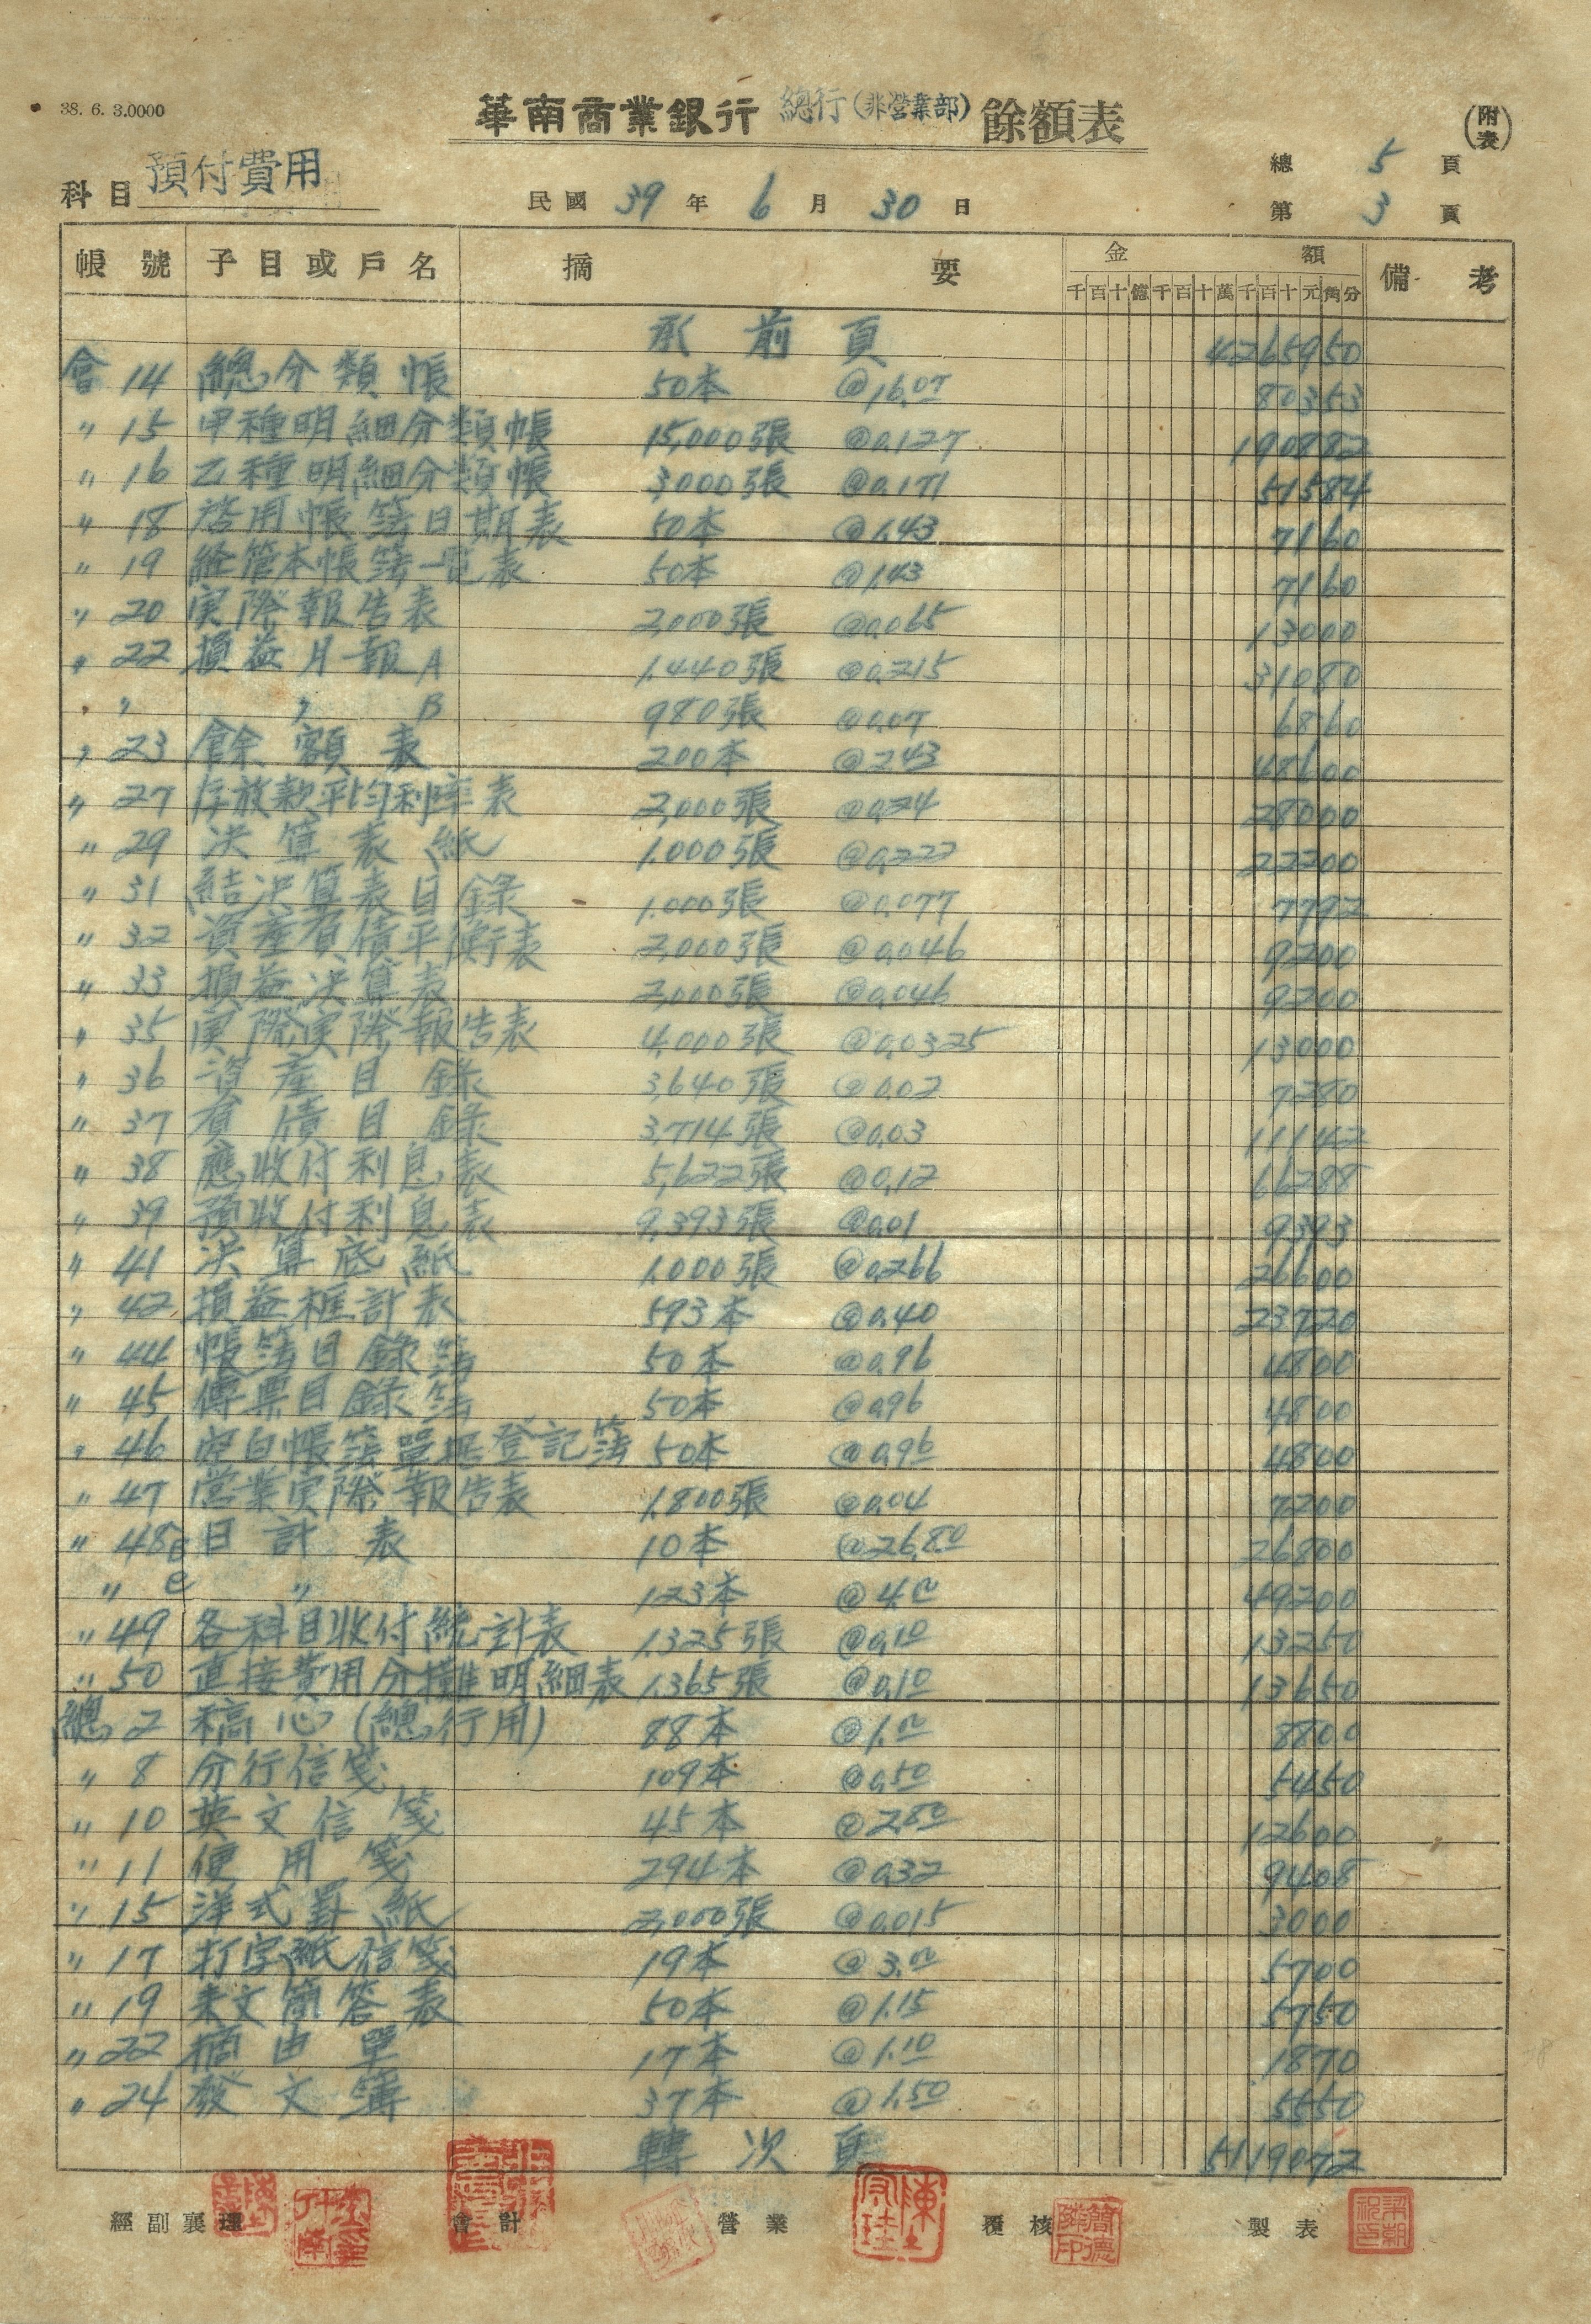 38. 6. 3.0000
華南商業銀行 總行(非營業部) 餘額表
(附表)
科目 預付費用
民國 39 年 6 月 30 日
總 5 頁
第 3 頁
帳號 子目或戶名 摘要 金額 備考
千百十億千百十萬千百十元角分
承前頁 4265950
會 14 總分類帳 50本 @16.07 80353
〃 15 甲種明細分類帳 15,000張 @0.127 190882
〃 16 乙種明細分類帳 3,000張 @0.171 51584
〃 18 啓用帳簿日期表 50本 @1.43 7160
〃 19 経管本帳簿一覧表 50本 @1.43 7160
〃 20 実際報告表 2,000張 @0.065 13000
〃 22 損益月報A 1,440張 @0.215 31080
〃 〃 〃 B 980張 @0.07 6860
〃 23 餘額表 200本 @2.43 48600
〃 27 存放款平均利率表 2,000張 @0.24 28000
〃 29 決算表紙 1,000張 @0.222 22200
〃 31 結決算表目錄 1,000張 @0.077 7792
〃 32 資産負債平衡表 2,000張 @0.046 9200
〃 33 損益決算表 2,000張 @0.046 9200
〃 35 実際実際報告表 4,000張 @0.0325 13000
〃 36 資産目錄 3,640張 @0.02 7280
〃 37 負債目錄 3,714張 @0.03 11142
〃 38 應收付利息表 5,622張 @0.12 66288
〃 39 預收付利息表 9,393張 @0.01 9393
〃 41 決算底紙 1,000張 @0.266 26600
〃 42 損益框計表 593本 @0.40 23720
〃 44 帳簿目錄簿 50本 @0.96 4800
〃 45 傳票目錄簿 50本 @0.96 4800
〃 46 空白帳簿單据登記簿 50本 @0.96 4800
〃 47 営業実際報告表 1,800張 @0.04 7200
〃 48B 日計表 10本 @26.80 26800
〃 C 〃 123本 @4.00 49200
〃 49 各科目收付統計表 1,325張 @0.10 13250
〃 50 直接費用分攤明細表 1,365張 @0.10 13650
總 2 稿心(總行用) 88本 @1.00 8800
〃 8 分行信箋 109本 @0.50 5450
〃 10 英文信箋 45本 @2.80 12600
〃 11 便用箋 294本 @0.32 9408
〃 15 洋式罫紙 2,000張 @0.015 3000
〃 17 打字紙信箋 19本 @3.00 5700
〃 19 来文簡答表 50本 @1.15 5750
〃 22 摘由單 17本 @1.10 1870
〃 24 發文簿 37本 @1.50 5550
轉次頁 5119072
經副襄理 會計 營業 覆核 製表